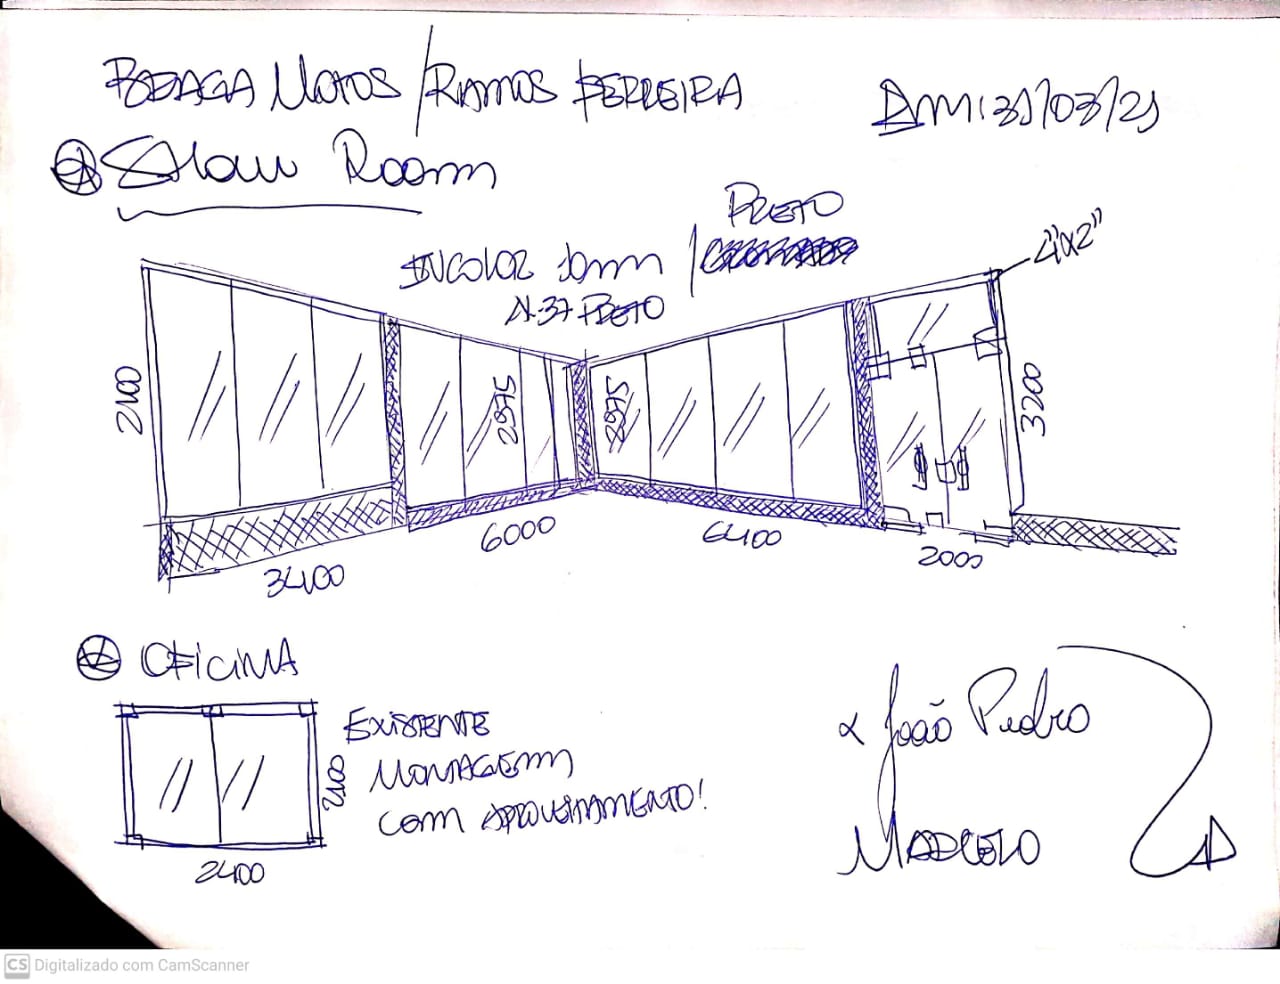 BODAGA MOTOS / RAMOS FERREIRA
AM: 31/03/21
Show Room
PRETO
INCOLOR 10mm /
N-37 PRETO
4"x2"
2400
2975
2975
3200
3400
6000
6400
2000
OFICINA
EXISTENTE
MONTAGEM
COM APROVEITAMENTO!
2100
2400
João Pedro
MARCELO
CS Digitalizado com CamScanner